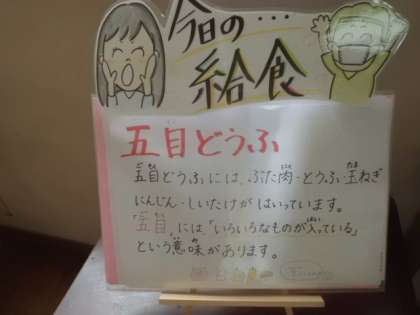 今日の…
給食
五目どうふ
五目どうふには、ぶた肉・とうふ・玉ねぎ
にんじん・しいたけがはいっています。
「五目」には「いろいろなものが入っている」
という意味があります。